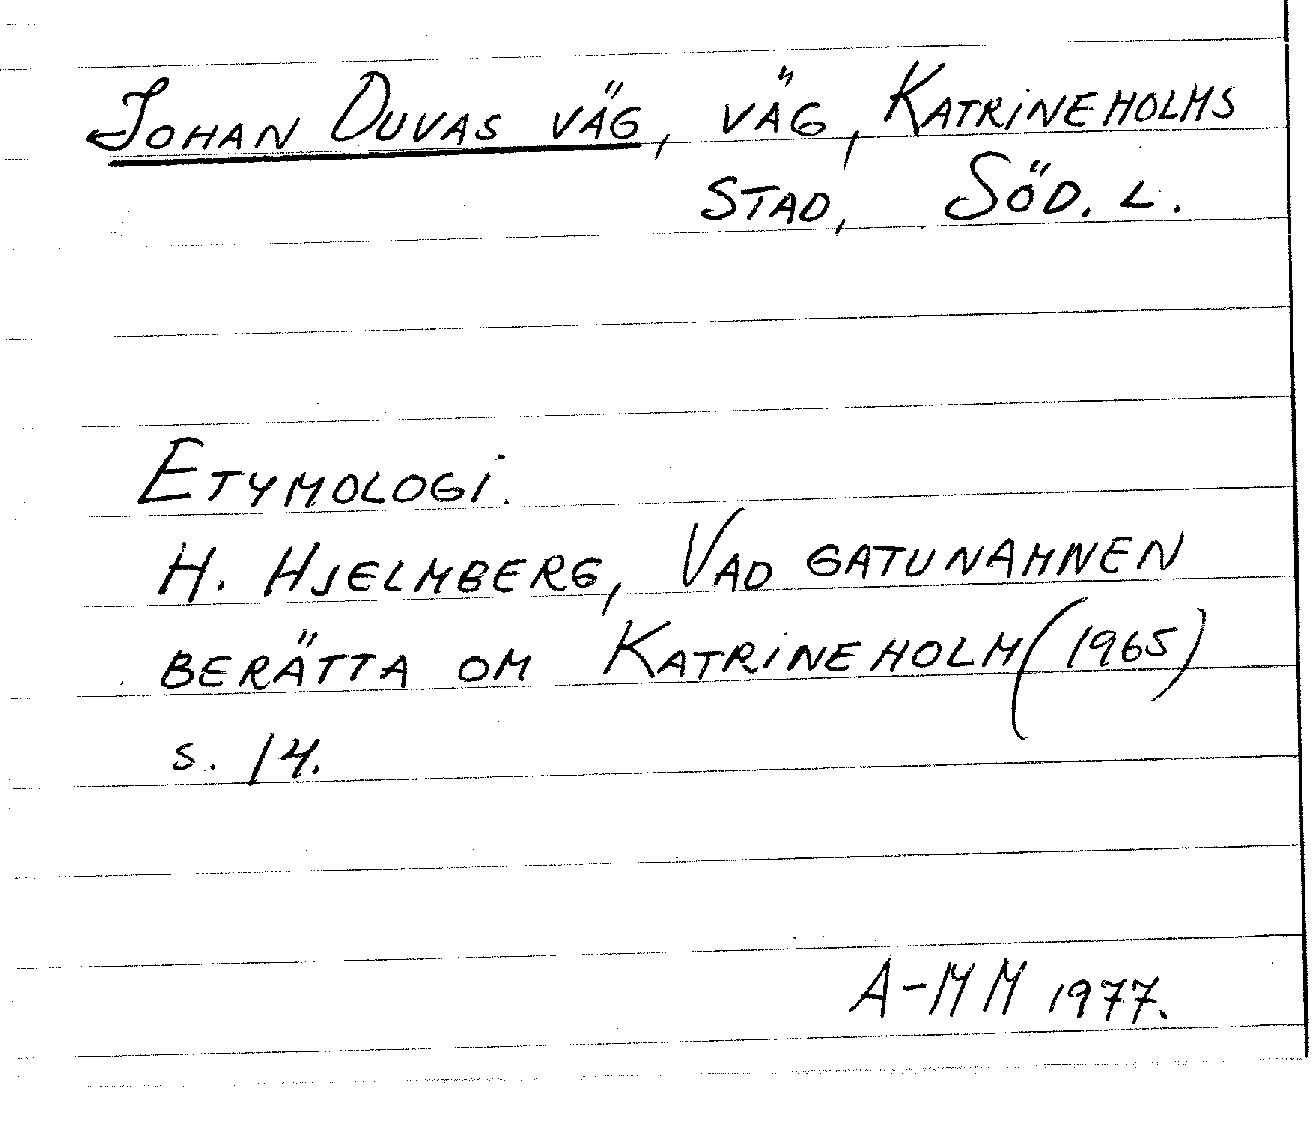 Johan Duvas väg, väg, Katrineholms
stad, Söd. l.
Etymologi.
H. Hjelmberg, Vad gatunamnen
berätta om Katrineholm (1965)
s. 14.
A-MM 1977.